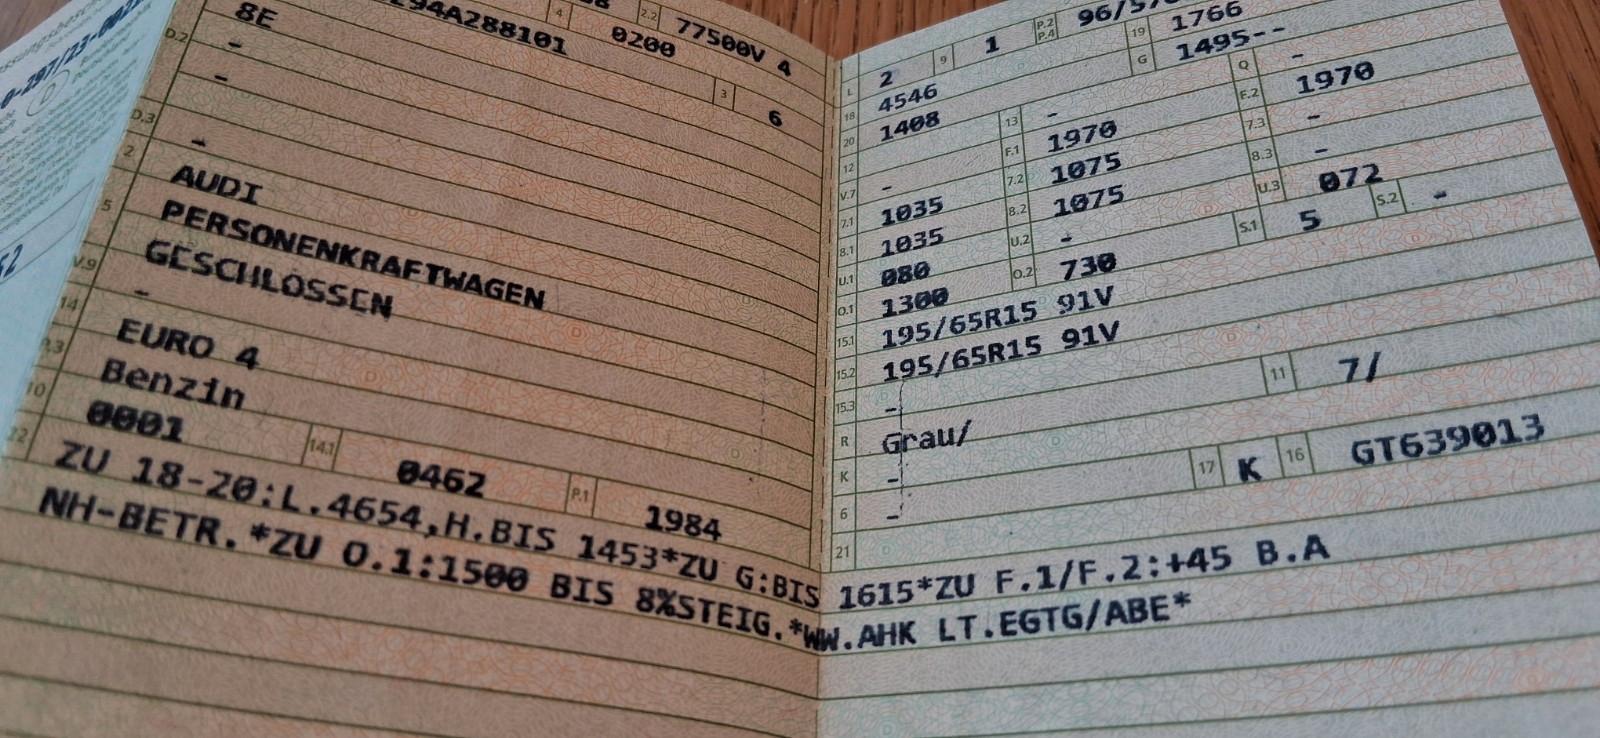 94A288101 4 0200 2.2 77500V 4
D.2 8E
-
- 3 6
D.3 -
2 AUDI
5 PERSONENKRAFTWAGEN
GESCHLOSSEN
V.9 -
14 EURO 4
Benzin
10 0001 14.1 0462 P.1 1984
22 ZU 18-20:L.4654,H.BIS 1453*ZU G:BIS 1615*ZU F.1/F.2:+45 B.A
NH-BETR.*ZU O.1:1500 BIS 8%STEIG.*WW.AHK LT.EGTG/ABE*
L 2 9 1 P.2 P.4
18 4546 19 1766
20 1408 G 1495--
12 - 13 - Q -
V.7 - F.1 1970 F.2 1970
7.1 1035 7.2 1075 7.3 -
8.1 1035 8.2 1075 8.3 -
U.1 080 U.2 - U.3 072
O.1 1300 O.2 730 S.1 5 S.2 -
15.1 195/65R15 91V
15.2 195/65R15 91V
15.3 -
R Grau/ 11 7/
K -
6 - 17 K 16 GT639013
21